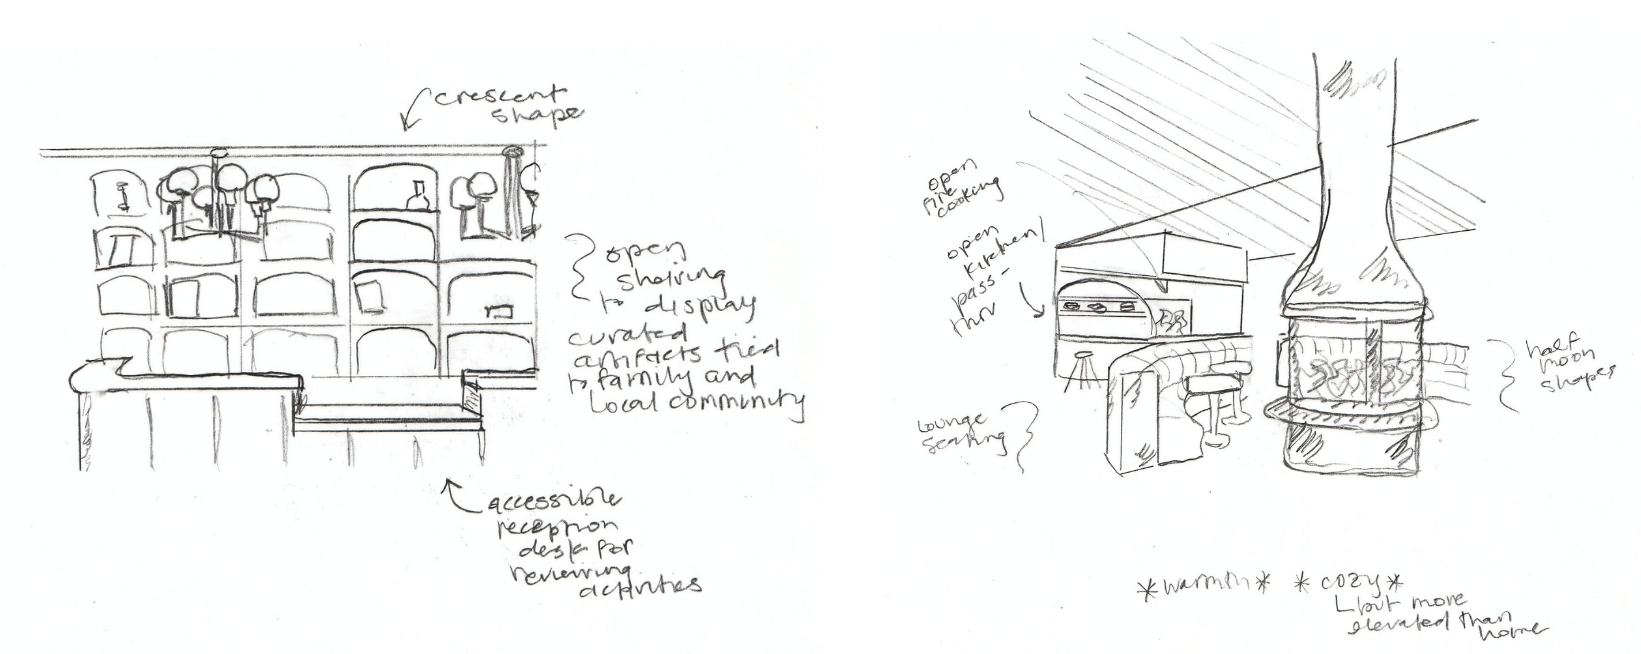 crescent
shape
open
shelving
to display
curated
artifacts tied
to family and
local community
accessible
reception
desk for
reviewing
activities
open
fire
cooking
open
kitchen/
pass-
thru
lounge
seating
half
moon
shapes
*warmth* *cozy*
but more
elevated than
home